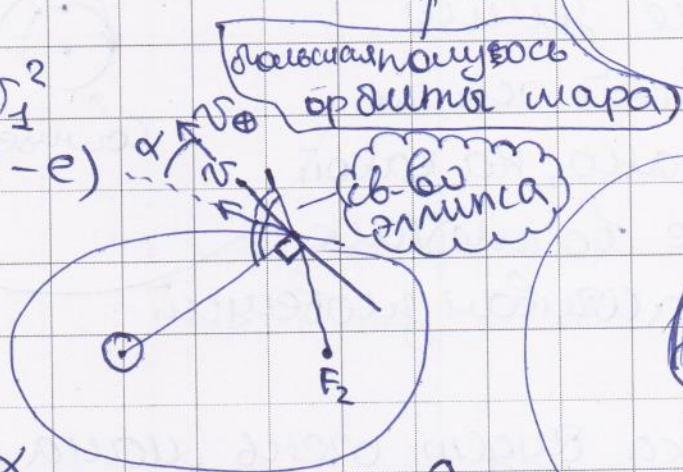 большая полуось
орбиты шара)
1²
-e)
α
v⊕
v
св-во
эллипса
F₂